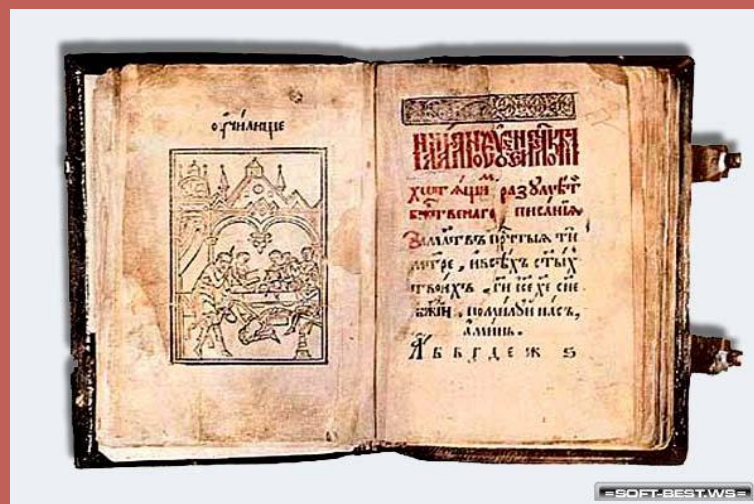 оучилище
хотѧщимъ разумѣти
бж҃твенаго писанїѧ
За мл҃твъ пр҃чтыѧ ти
мт҃ре, и всѣхъ ст҃ыхъ
твоихъ, гд҃и іс҃е хе҃ сн҃е
бж҃їи, помилуй насъ,
аминь.
А Б В Г Д Е Ж Ѕ
=SOFT-BEST.WS=